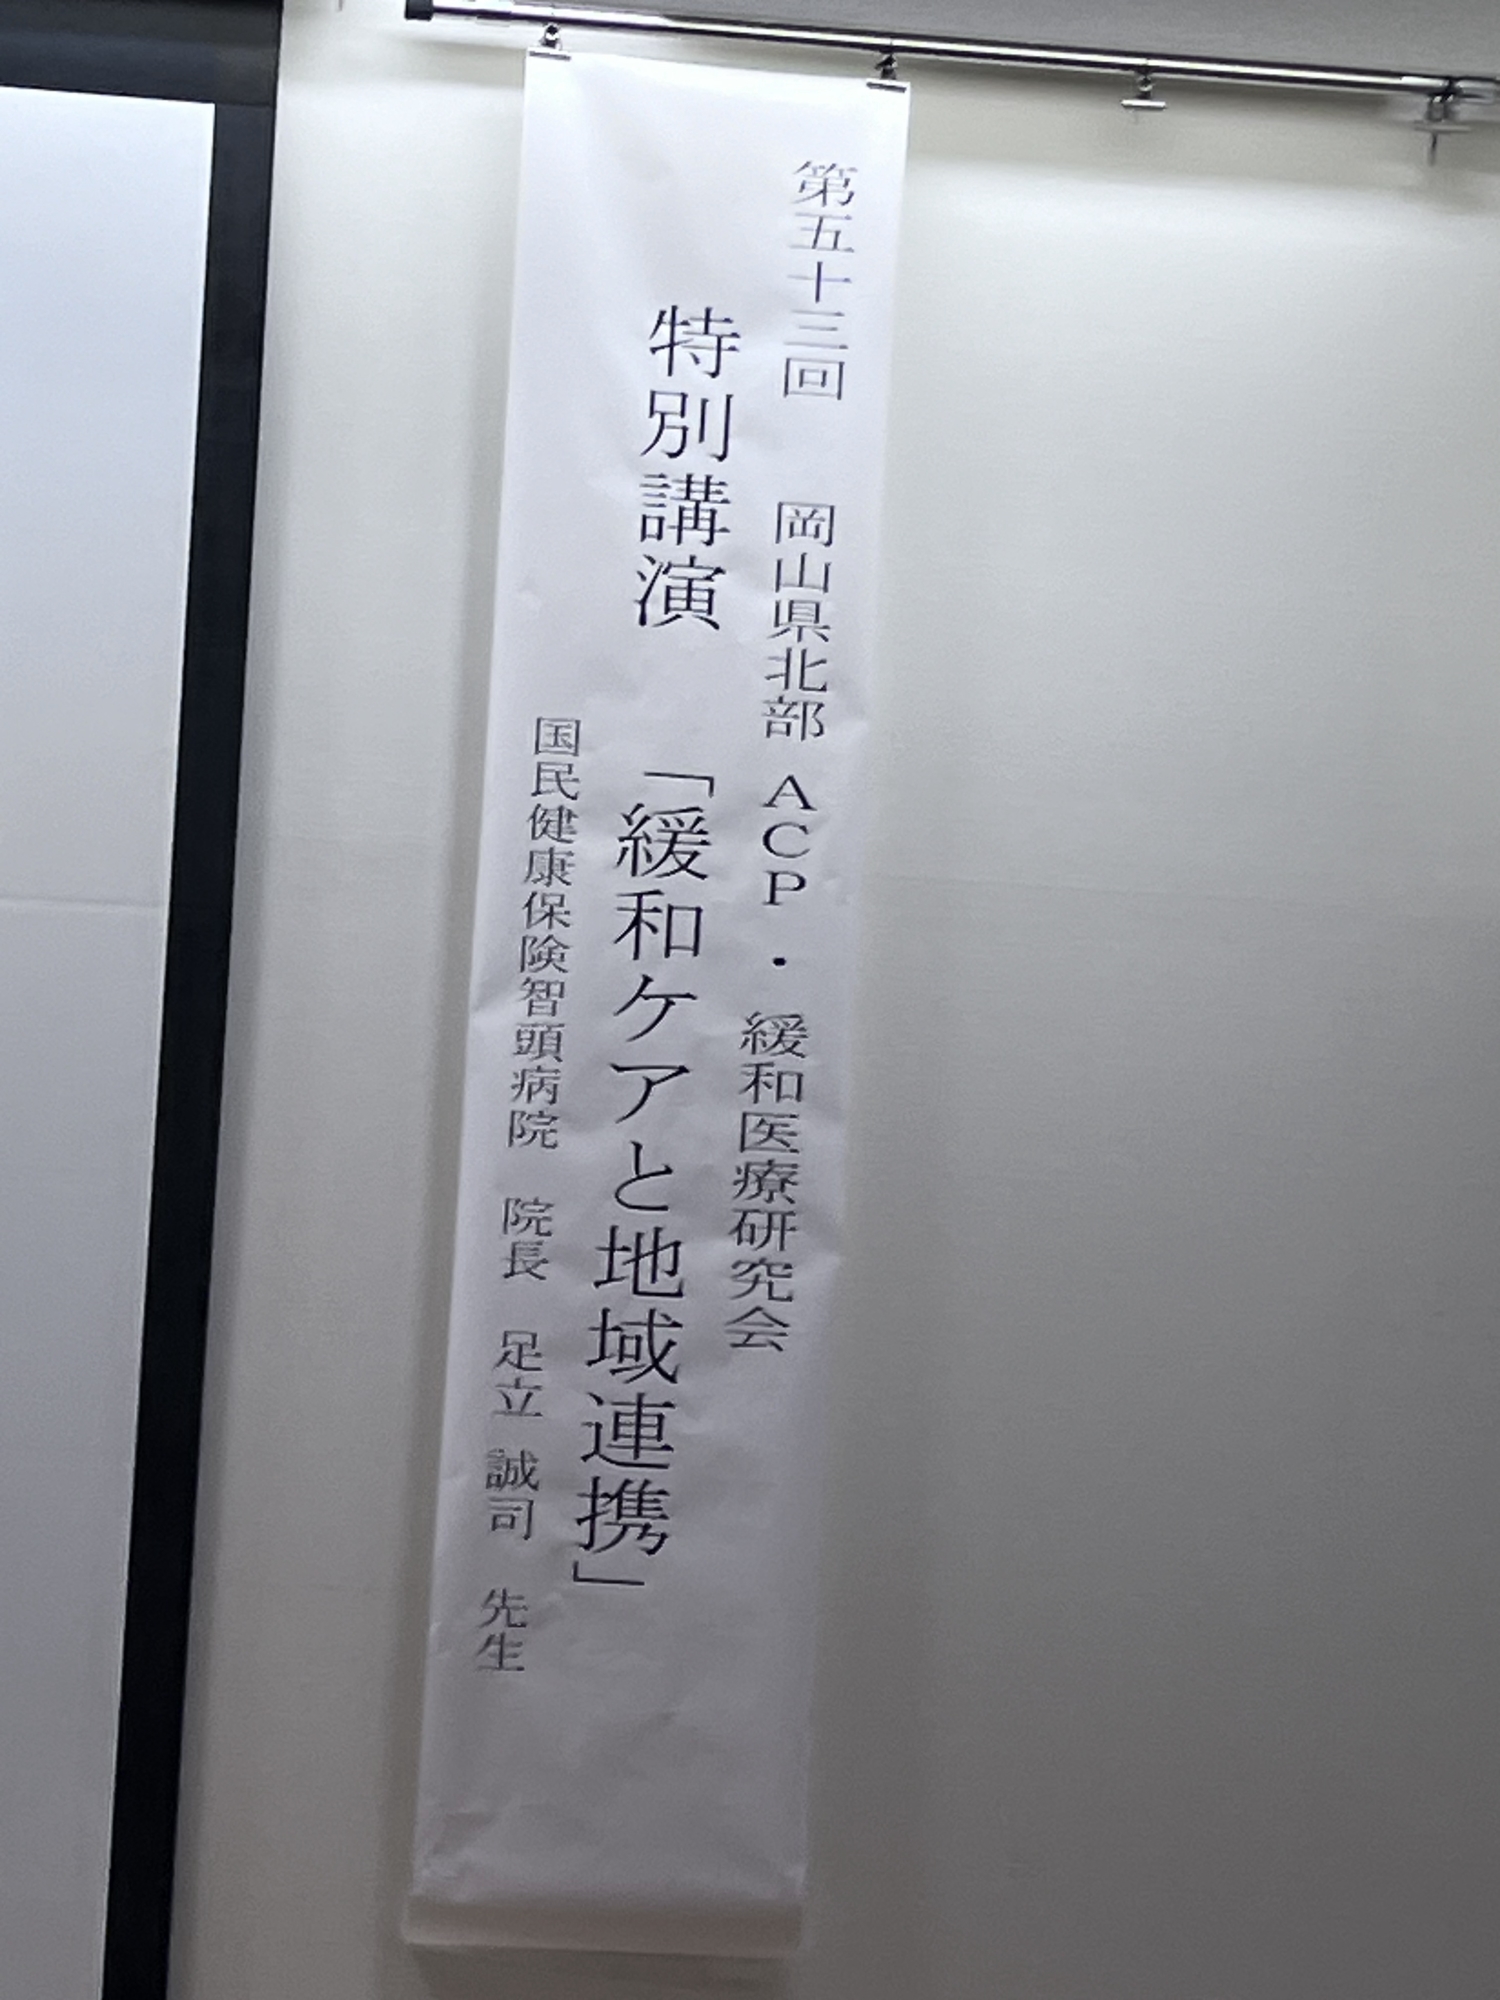 第五十三回 岡山県北部 ACP・緩和医療研究会
特別講演 「緩和ケアと地域連携」
国民健康保険智頭病院 院長 足立 誠司 先生